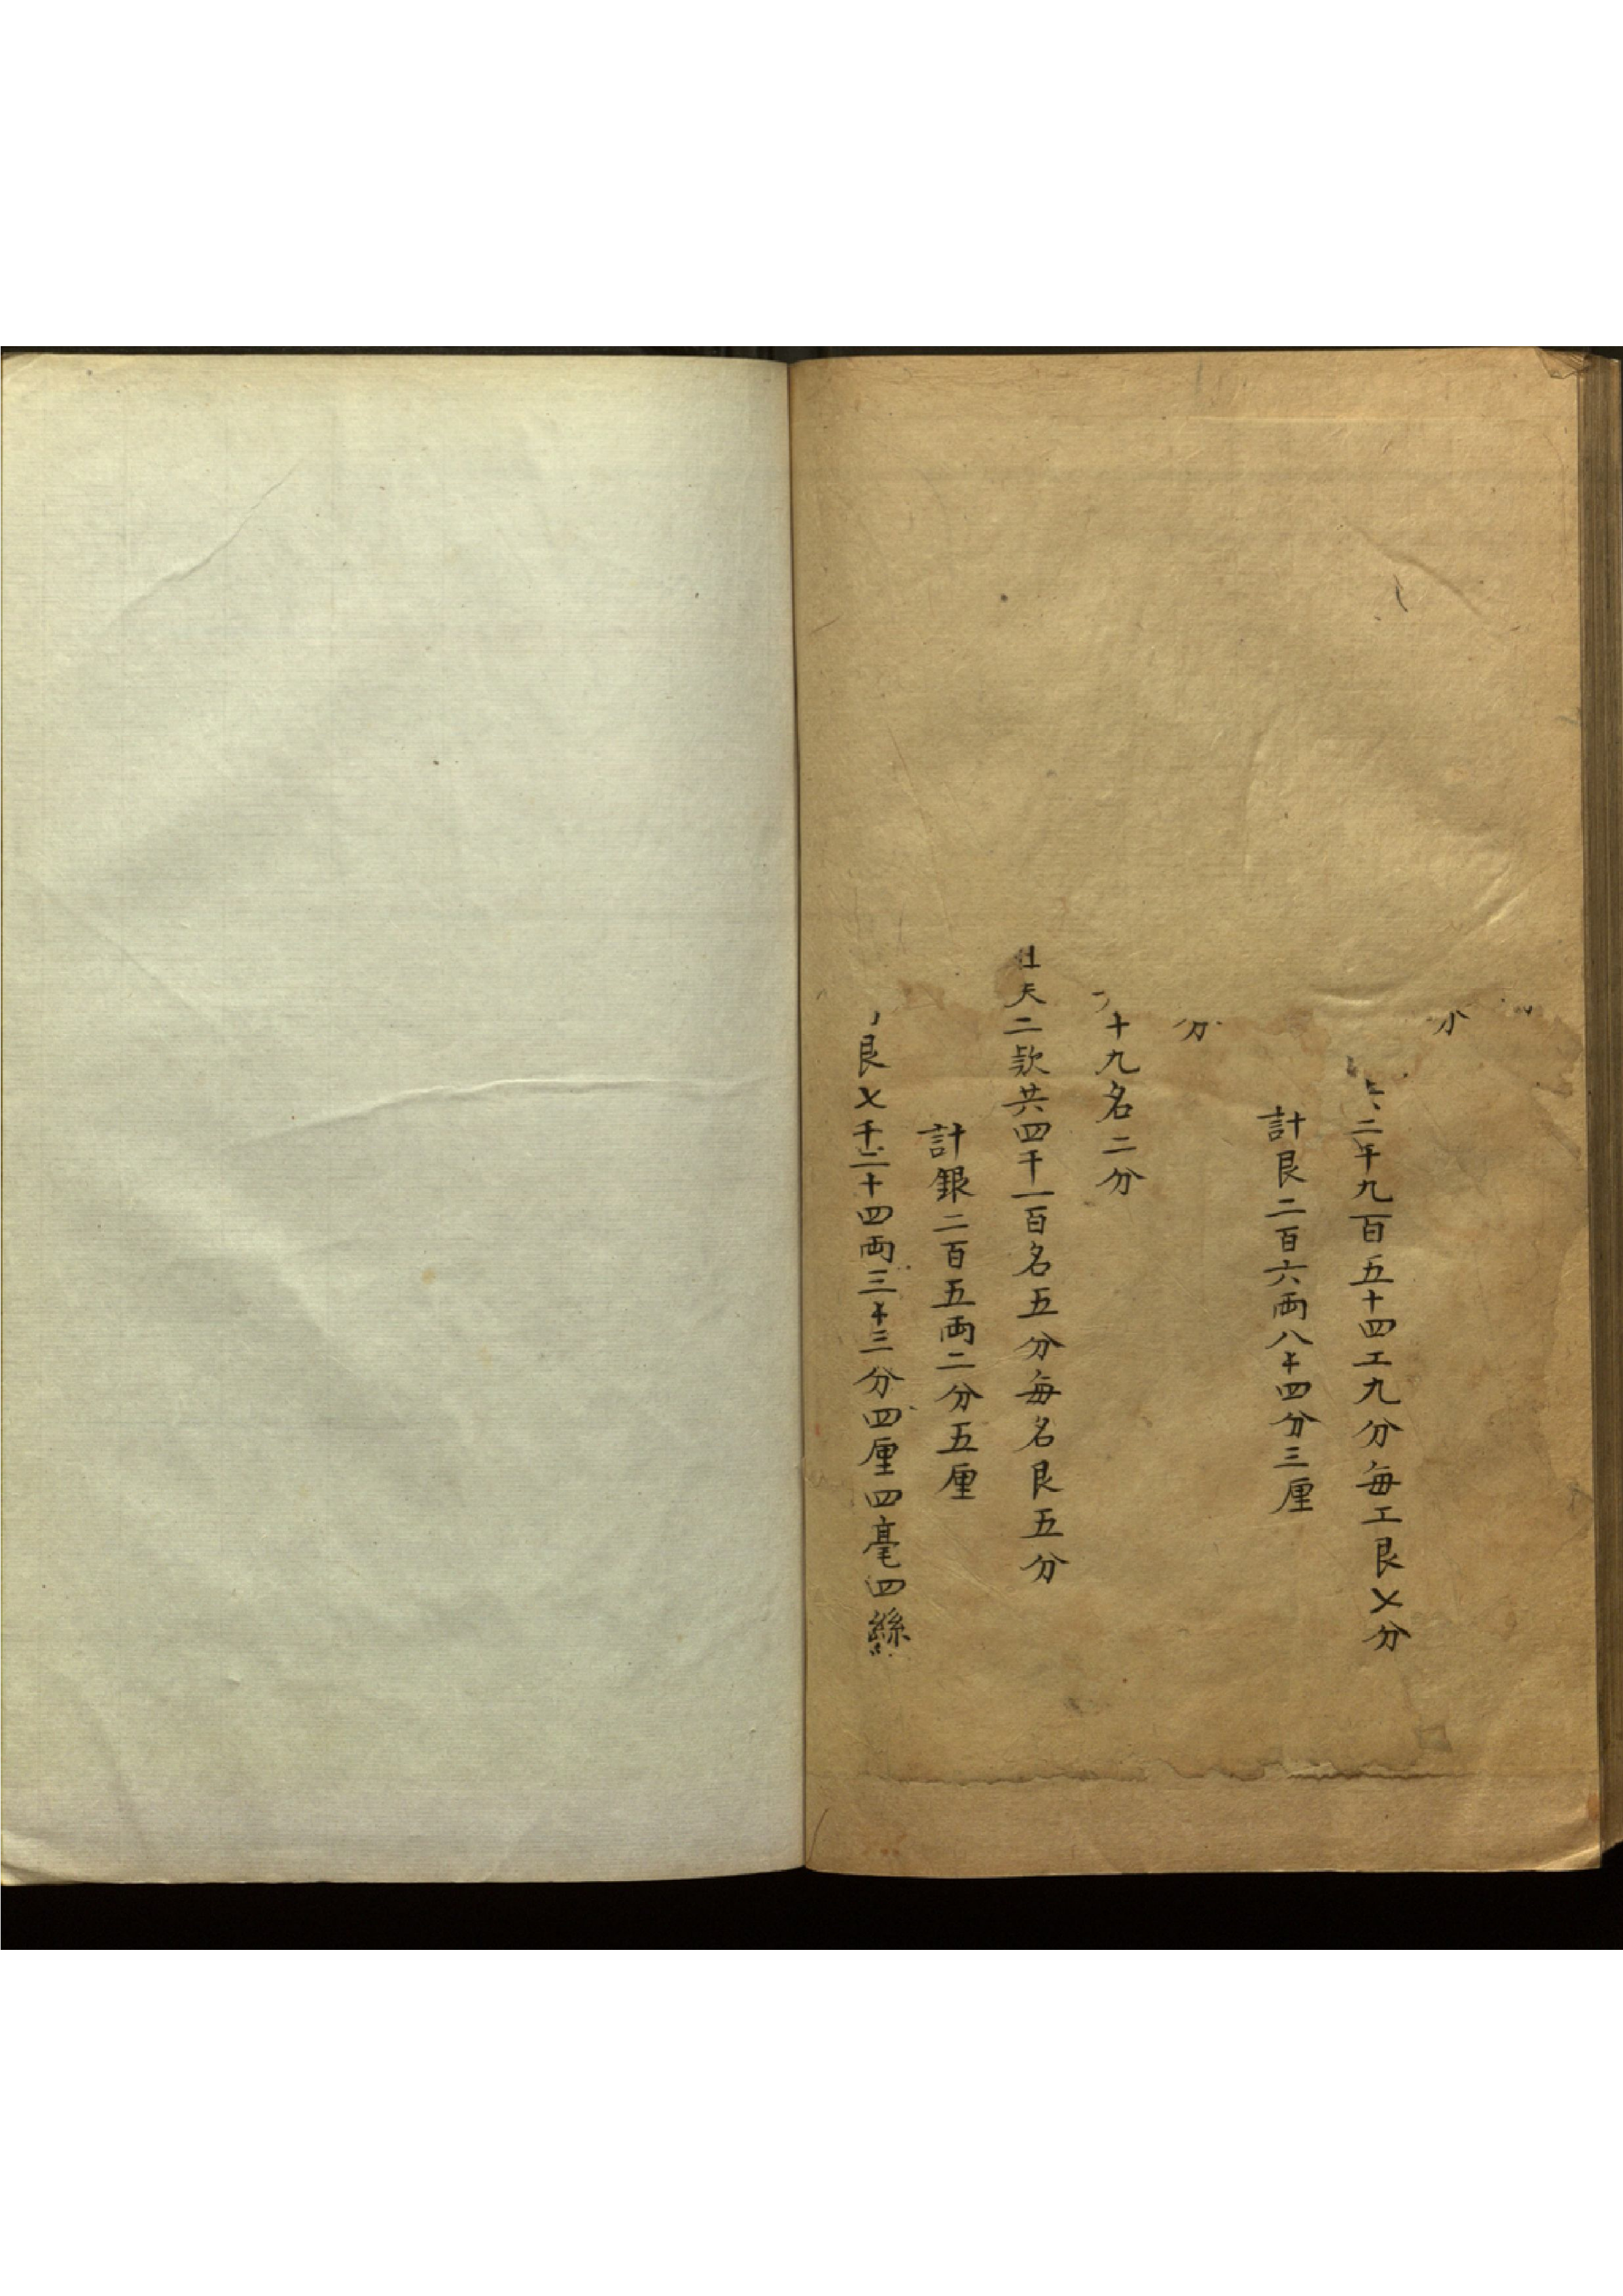 二千九百五十四工九分每工艮乄分
計艮二百六両八才四分三厘
分
十九名二分
夫二欵共四千一百名五分每名艮五分
計銀二百五両二分五厘
艮乄千二十四両三才三分四厘四毫四絲